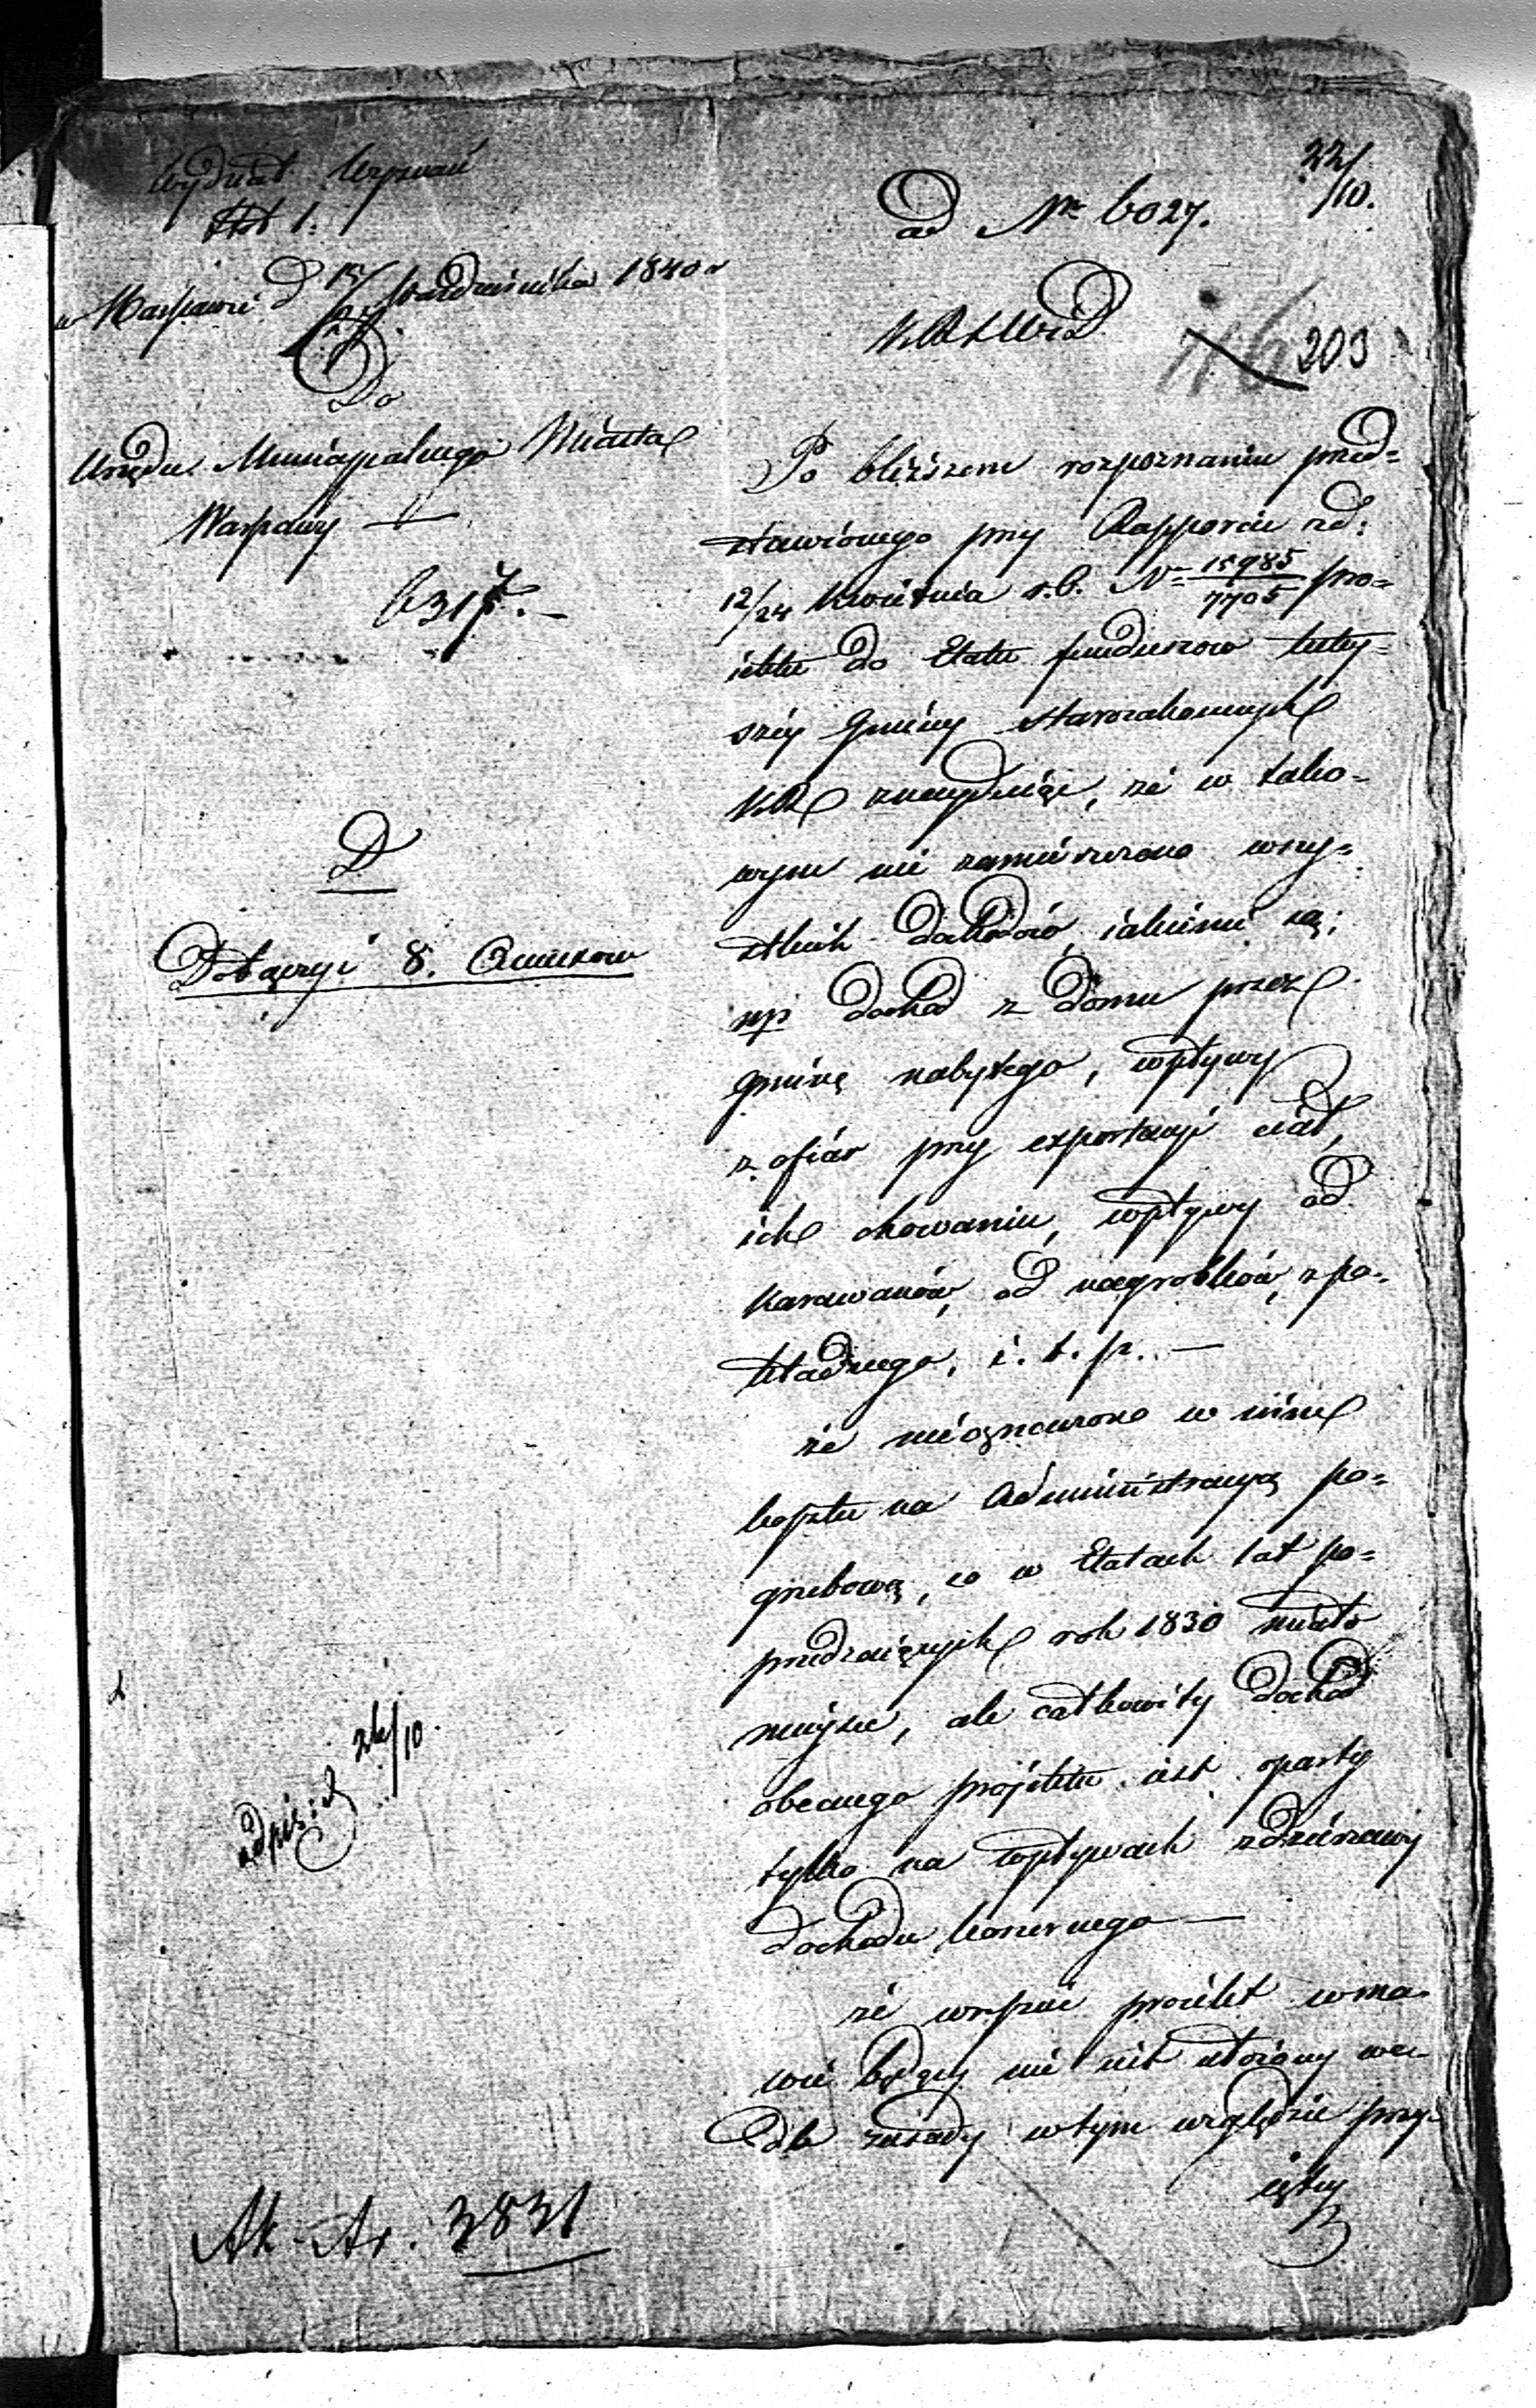 Wydział Wyznań
w Warszawie d 15/27 Października 1840 r
Do
Urzędu Municypalnego Miasta
Warszawy
6317.
D
Dołączyć 8. Annexow
24/10.
Ak. At. 3831
22/10.
ad Nr 6027.
203
Po bliższem rozpoznaniu przed=
stawionego przy Rapporcie zd:
12/24 Kwietnia r.b. Nr 15985/7705 pro=
iektu do Etatu funduszow tutey=
széy Gminy Starozakonnych
KR znayduiąc, że w tako=
wym nie zamieszczono wszy=
stkich dochodów, iakiemi są:
np dochód z domu przez
gminę nabytego, wpływy
z ofiar przy exportacyi ciał,
ich chowaniu, wpływy od
karawanów, od nagrobków, z po=
kładnego, i. t. p. —
że nieoznaczono w nim
kosztu na Administracyą po=
grzebową, co w Etatach lat po=
przedzaiących rok 1830 miało
mieysce, ale całkowity dochód
obecnego projektu iest oparty
tylko na wpływach z dzierżawy
dochodu koszernego —
że wreszcie proiekt w mo=
wie będący nie iest ułożony we=
dle zasady w tym względzie przy=
iętey